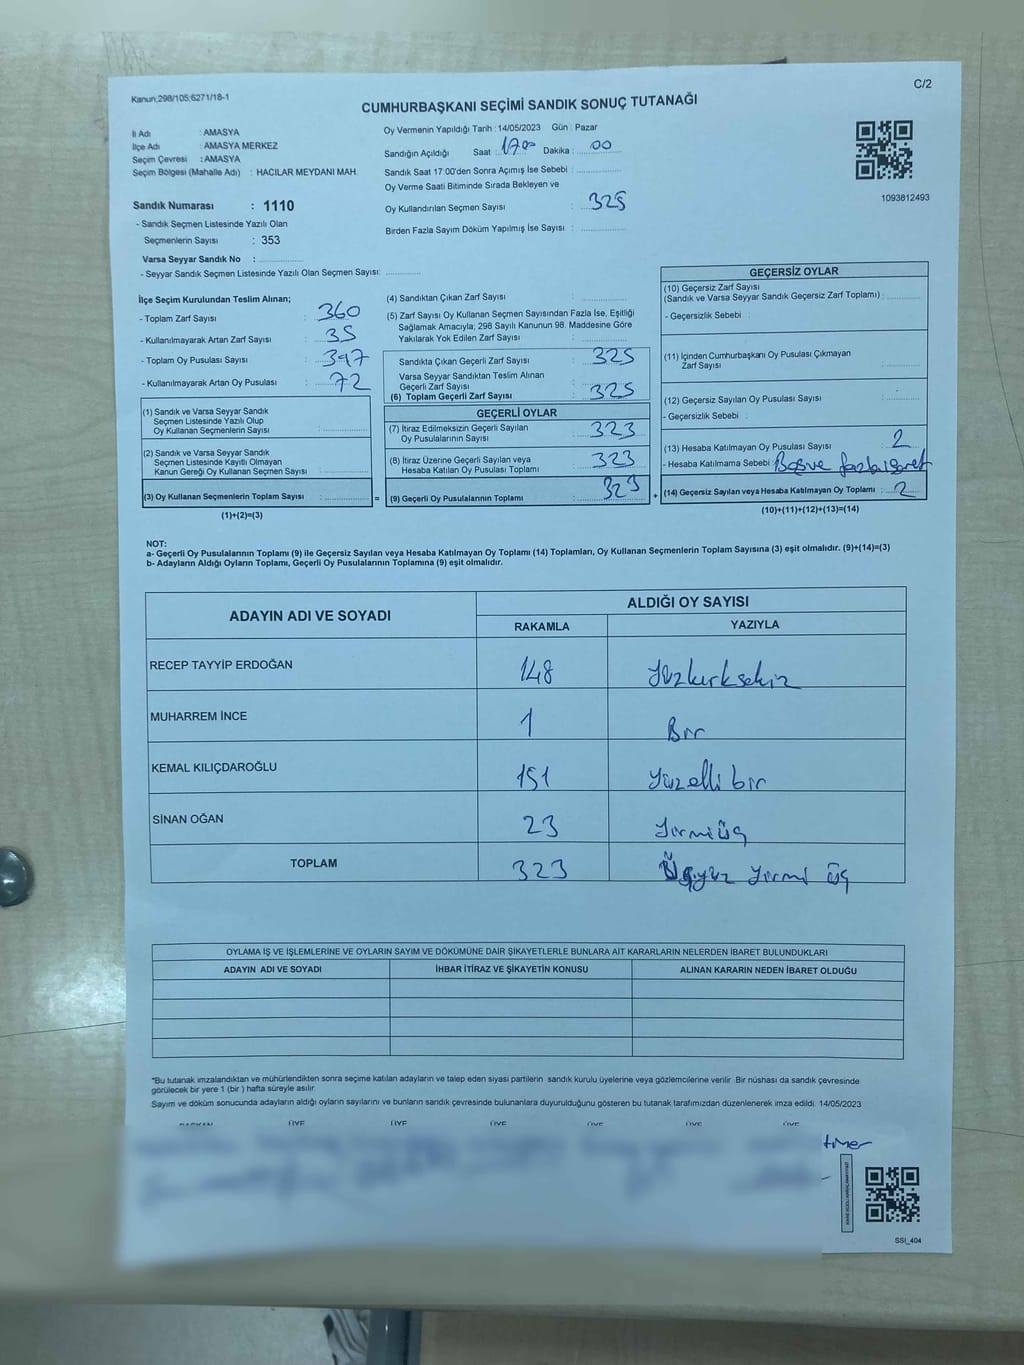 Kanun;298/105;6271/18-1
C/2
CUMHURBAŞKANI SEÇİMİ SANDIK SONUÇ TUTANAĞI
İl Adı : AMASYA
İlçe Adı : AMASYA MERKEZ
Seçim Çevresi : AMASYA
Seçim Bölgesi (Mahalle Adı) : HACILAR MEYDANI MAH.
Sandık Numarası : 1110
- Sandık Seçmen Listesinde Yazılı Olan
Seçmenlerin Sayısı : 353
Varsa Seyyar Sandık No :
- Seyyar Sandık Seçmen Listesinde Yazılı Olan Seçmen Sayısı:
Oy Vermenin Yapıldığı Tarih : 14/05/2023 Gün : Pazar
Sandığın Açıldığı Saat : 1700 Dakika : 00
Sandık Saat 17:00'den Sonra Açımış İse Sebebi :
Oy Verme Saati Bitiminde Sırada Bekleyen ve
Oy Kullandırılan Seçmen Sayısı : 325
Birden Fazla Sayım Döküm Yapılmış İse Sayısı :
1093812493
İlçe Seçim Kurulundan Teslim Alınan;
- Toplam Zarf Sayısı : 360
- Kullanılmayarak Artan Zarf Sayısı : 35
- Toplam Oy Pusulası Sayısı : 397
- Kullanılmayarak Artan Oy Pusulası : 72
(1) Sandık ve Varsa Seyyar Sandık
Seçmen Listesinde Yazılı Olup
Oy Kullanan Seçmenlerin Sayısı :
(2) Sandık ve Varsa Seyyar Sandık
Seçmen Listesinde Kayıtlı Olmayan
Kanun Gereği Oy Kullanan Seçmen Sayısı :
(3) Oy Kullanan Seçmenlerin Toplam Sayısı : =
(1)+(2)=(3)
(4) Sandıktan Çıkan Zarf Sayısı :
(5) Zarf Sayısı Oy Kullanan Seçmen Sayısından Fazla İse, Eşitliği
Sağlamak Amacıyla; 298 Sayılı Kanunun 98. Maddesine Göre
Yakılarak Yok Edilen Zarf Sayısı :
Sandıkta Çıkan Geçerli Zarf Sayısı : 325
Varsa Seyyar Sandıktan Teslim Alınan
Geçerli Zarf Sayısı :
(6) Toplam Geçerli Zarf Sayısı : 325
GEÇERLİ OYLAR
(7) İtiraz Edilmeksizin Geçerli Sayılan
Oy Pusulalarının Sayısı : 323
(8) İtiraz Üzerine Geçerli Sayılan veya
Hesaba Katılan Oy Pusulası Toplamı : 323
(9) Geçerli Oy Pusulalarının Toplamı : 323 +
GEÇERSİZ OYLAR
(10) Geçersiz Zarf Sayısı
(Sandık ve Varsa Seyyar Sandık Geçersiz Zarf Toplamı) :
- Geçersizlik Sebebi :
(11) İçinden Cumhurbaşkanı Oy Pusulası Çıkmayan
Zarf Sayısı :
(12) Geçersiz Sayılan Oy Pusulası Sayısı :
- Geçersizlik Sebebi :
(13) Hesaba Katılmayan Oy Pusulası Sayısı : 2
- Hesaba Katılmama Sebebi : Boş ve fazla işaret
(14) Geçersiz Sayılan veya Hesaba Katılmayan Oy Toplamı : 2
(10)+(11)+(12)+(13)=(14)
NOT:
a- Geçerli Oy Pusulalarının Toplamı (9) ile Geçersiz Sayılan veya Hesaba Katılmayan Oy Toplamı (14) Toplamları, Oy Kullanan Seçmenlerin Toplam Sayısına (3) eşit olmalıdır. (9)+(14)=(3)
b- Adayların Aldığı Oyların Toplamı, Geçerli Oy Pusulalarının Toplamına (9) eşit olmalıdır.
ADAYIN ADI VE SOYADI ALDIĞI OY SAYISI
RAKAMLA YAZIYLA
RECEP TAYYİP ERDOĞAN 148 Yüzkırksekiz
MUHARREM İNCE 1 Bir
KEMAL KILIÇDAROĞLU 151 Yüzelli bir
SİNAN OĞAN 23 Yirmiüç
TOPLAM 323 Üçyüz Yirmi üç
OYLAMA İŞ VE İŞLEMLERİNE VE OYLARIN SAYIM VE DÖKÜMÜNE DAİR ŞİKAYETLERLE BUNLARA AİT KARARLARIN NELERDEN İBARET BULUNDUKLARI
ADAYIN ADI VE SOYADI İHBAR İTİRAZ VE ŞİKAYETİN KONUSU ALINAN KARARIN NEDEN İBARET OLDUĞU
*Bu tutanak imzalandıktan ve mühürlendikten sonra seçime katılan adayların ve talep eden siyasi partilerin sandık kurulu üyelerine veya gözlemcilerine verilir. Bir nüshası da sandık çevresinde
görülecek bir yere 1 (bir ) hafta süreyle asılır.
Sayım ve döküm sonucunda adayların aldığı oyların sayılarını ve bunların sandık çevresinde bulunanlara duyurulduğunu gösteren bu tutanak tarafımızdan düzenlenerek imza edildi. 14/05/2023
BAŞKAN ÜYE ÜYE ÜYE ÜYE ÜYE ÜYE
SSI_404